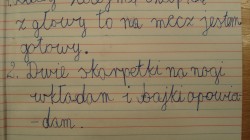 z głowy to na mecz jestem
gotowy.
2. Dwie skarpetki na nogi
wkładam i bajki opowia-
-dam.